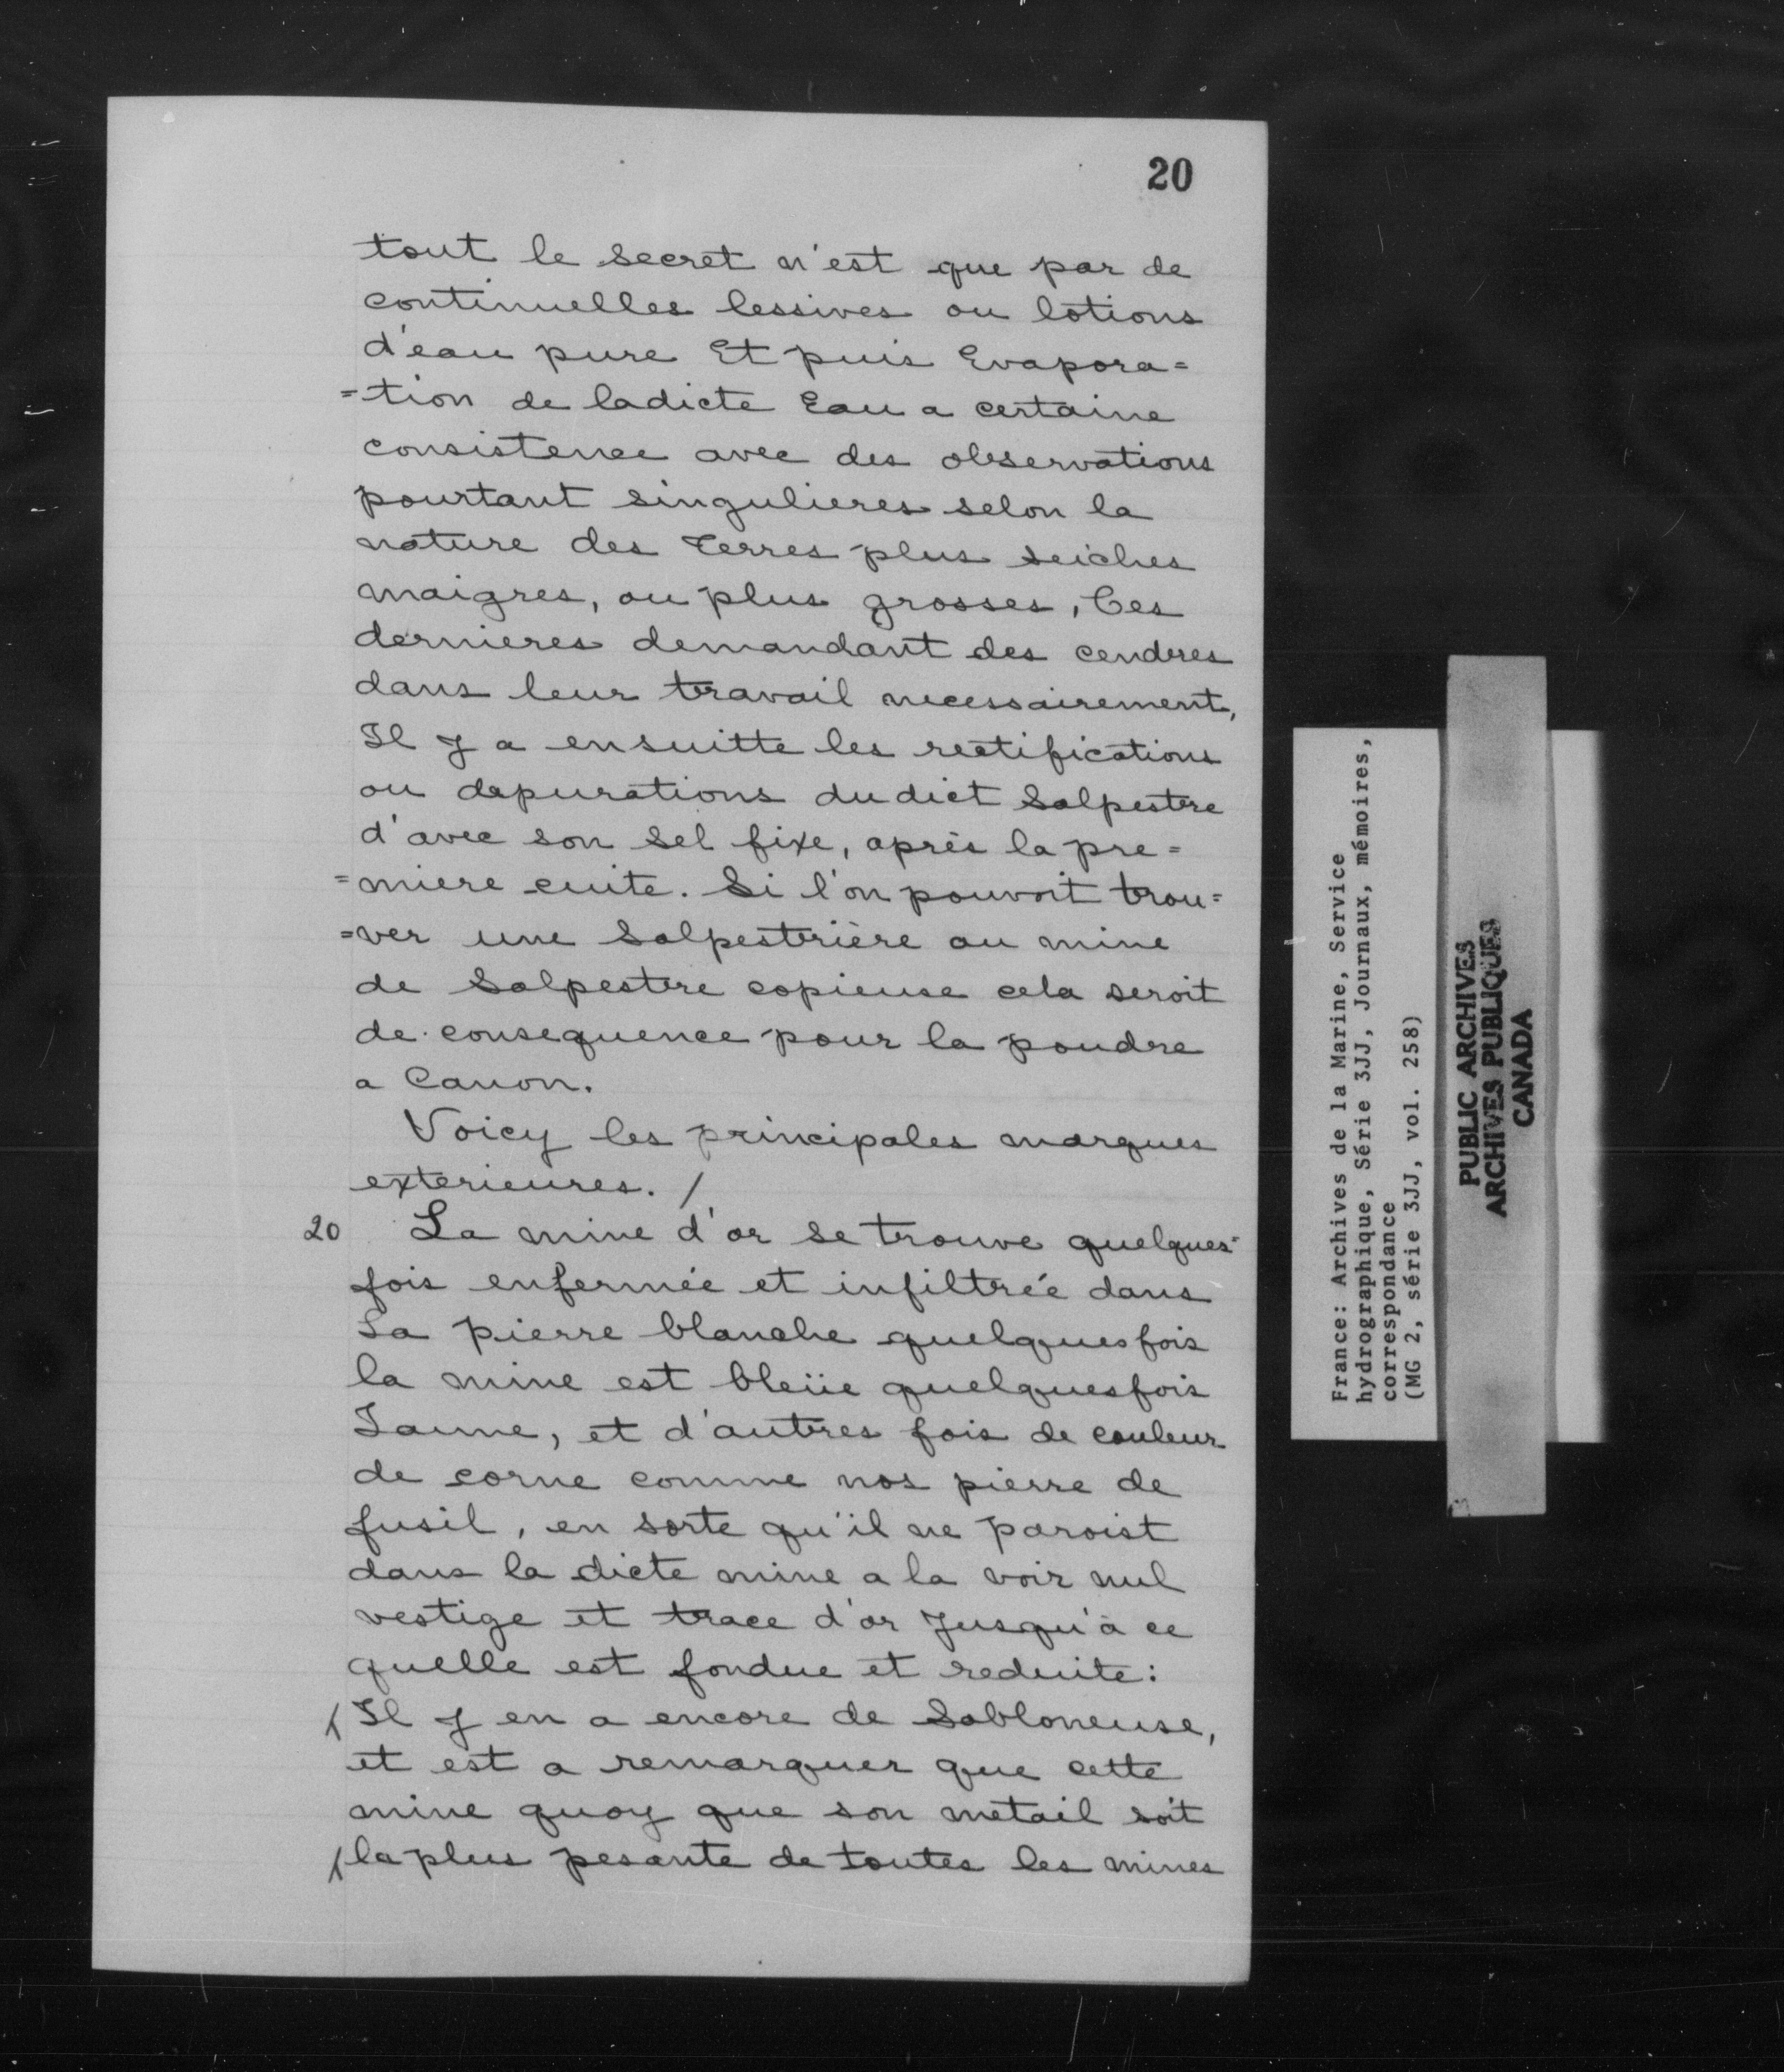 20
tout le secret n'est que par de
continuelles lessives ou lotions
d'eau pure Et puis Evapora=
=tion de ladicte Eau a certaine
consistence avec des observations
pourtant singulieres selon la
nature des Terres plus seiches
maigres, ou plus grosses, Ces
dernieres demandant des cendres
dans leur travail necessairement,
Il y a ensuitte les rectifications
ou depurations du dict Salpestre
d'avec son sel fixe, après la pre=
=miere cuite. Si l'on pouvoit trou=
=ver une Salpestrière ou mine
de Salpestre copieuse cela seroit
de consequence pour la poudre
a Canon.
Voicy les principales marques
exterieures. /
20 La mine d'or se trouve quelques=
fois enfermée et infiltrée dans
La pierre blanche quelquesfois
la mine est bleüe quelquesfois
Jaune, et d'autres fois de couleur
de corne comme nos pierre de
fusil, en sorte qu'il ne paroist
dans la dicte mine a la voir nul
vestige et trace d'or Jusqu'à ce
quelle est fondue et reduite:
Il y en a encore de Sabloneuse,
et est a remarquer que cette
mine quoy que son metail soit
la plus pesante de toutes les mines
France: Archives de la Marine, Service
hydrographique, Série 3JJ, Journaux, mémoires,
correspondance
(MG 2, série 3JJ, vol. 258)
PUBLIC ARCHIVES
ARCHIVES PUBLIQUES
CANADA